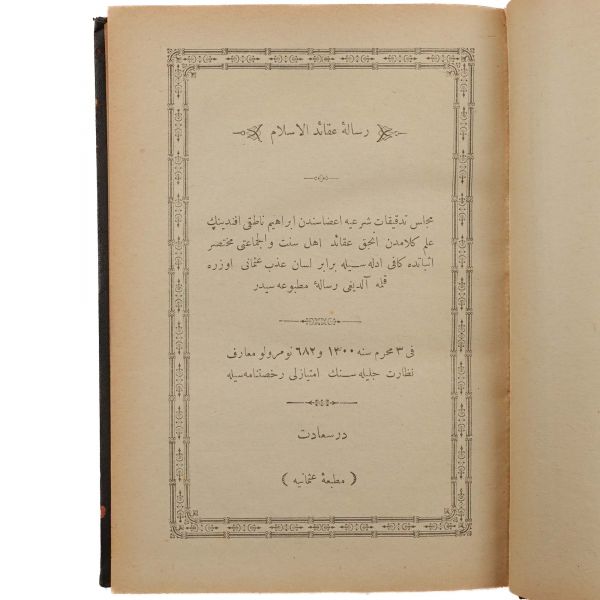 رسالهٔ عقائد الاسلام
مجلس تدقیقات شرعیه اعضاسندن ابراهیم ناطقی افندینك
علم كلامدن انجق عقائد اهل سنت والجماعتی مختصر
اثباتده كافی ادله سیله برابر لسان عذب عثمانی اوزره
قلمه آلدیغی رسالهٔ مطبوعه سیدر
فی ٣ محرم سنه ١٣٠٠ و ٦٨٢ نومرولو معارف
نظارت جلیله سنك امتیازلی رخصتنامه سیله
درسعادت
( مطبعهٔ عثمانیه )